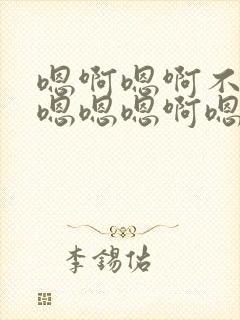 嗯啊嗯啊不
嗯嗯嗯啊嗯
李锡佑